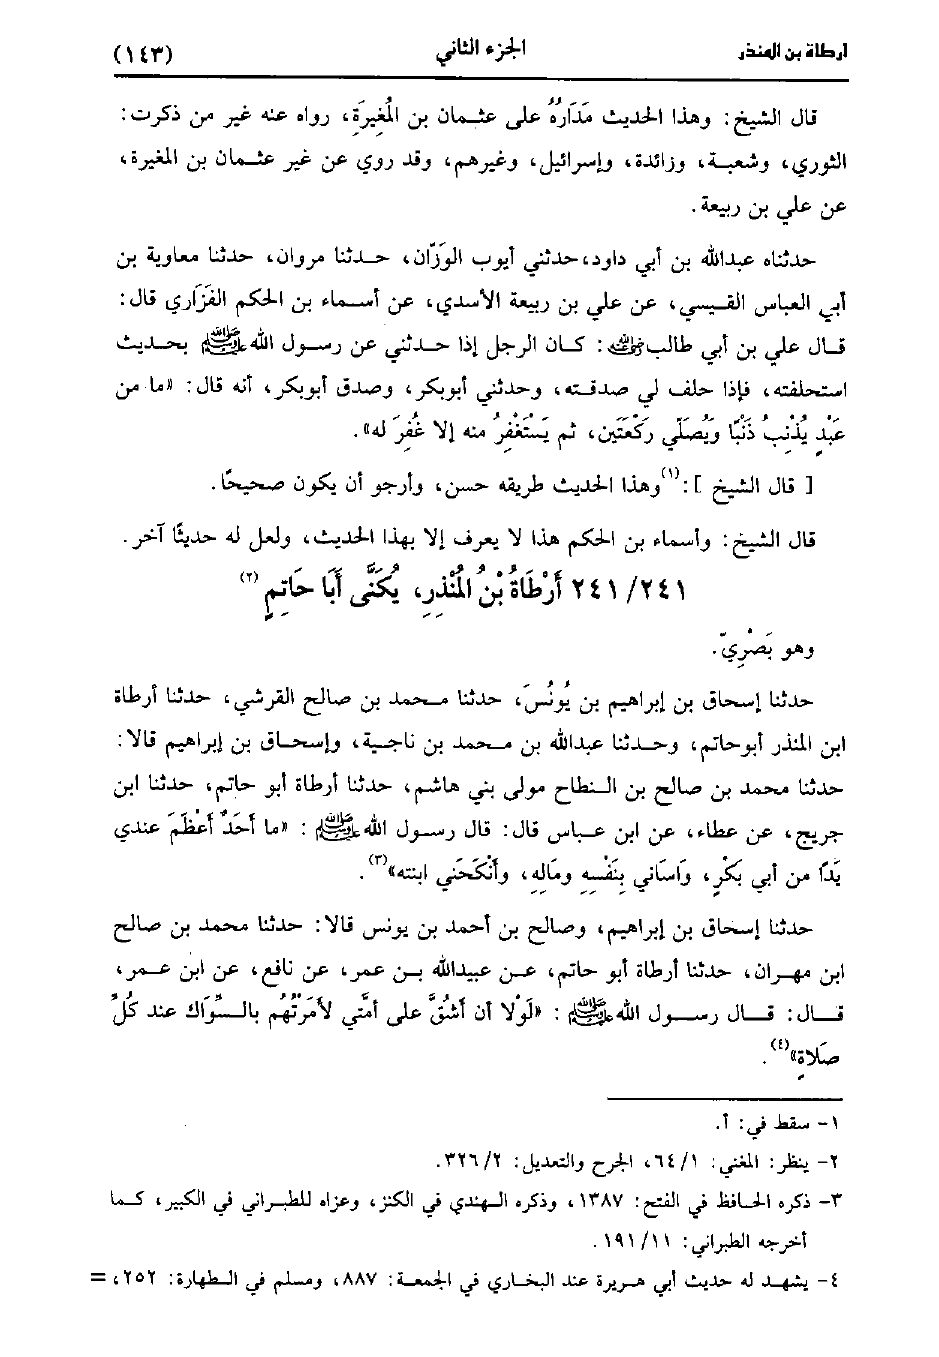 أرطاة بن المنذر الجزء الثاني (١٤٣)
قال الشيخ: وهذا الحديث مَدَارُهُ على عثمان بن المُغِيرَةِ، رواه عنه غير من ذكرت:
الثوري، وشعبة، وزائدة، وإسرائيل، وغيرهم، وقد روي عن غير عثمان بن المغيرة،
عن علي بن ربيعة.
حدثناه عبدالله بن أبي داود، حدثني أيوب الوَزَّان، حدثنا مروان، حدثنا معاوية بن
أبي العباس القيسي، عن علي بن ربيعة الأسدي، عن أسماء بن الحكم الفَزَاري قال:
قال علي بن أبي طالب رضي الله عنه: كان الرجل إذا حدثني عن رسول الله ﷺ بحديث
استحلفته، فإذا حلف لي صدقته، وحدثني أبوبكر، وصدق أبوبكر، أنه قال: «ما من
عَبْدٍ يُذْنِبُ ذَنْبًا وَيُصَلِّي رَكْعَتَيِن، ثم يَسْتَغْفِرُ منه إلا غُفِرَ له».
[ قال الشيخ ]:(١) وهذا الحديث طريقه حسن، وأرجو أن يكون صحيحًا.
قال الشيخ: وأسماء بن الحكم هذا لا يعرف إلا بهذا الحديث، ولعل له حديثًا آخر.
٢٤١/ ٢٤١ أَرْطَاةُ بْنُ المُنْذِرِ، يُكَنَّى أَبَا حَاتِمٍ (٢)
وهو بَصْرِيّ.
حدثنا إسحاق بن إبراهيم بن يُونُسَ، حدثنا محمد بن صالح القرشي، حدثنا أرطاة
ابن المنذر أبوحاتم، وحدثنا عبدالله بن محمد بن ناجية، وإسحاق بن إبراهيم قالا:
حدثنا محمد بن صالح بن النطاح مولى بني هاشم، حدثنا أرطاة أبو حاتم، حدثنا ابن
جريج، عن عطاء، عن ابن عباس قال: قال رسول الله ﷺ : «ما أَحَدٌ أَعْظَمَ عندي
يَدًا من أبي بَكْرٍ، وَاسَاني بِنَفْسِهِ ومَالِهِ، وأَنْكَحَني ابنته»(٣).
حدثنا إسحاق بن إبراهيم، وصالح بن أحمد بن يونس قالا: حدثنا محمد بن صالح
ابن مهران، حدثنا أرطاة أبو حاتم، عن عبيدالله بن عمر، عن نافع، عن ابن عمر،
قال: قال رسول الله ﷺ : «لَوْلا أن أَشُقَّ على أمَّتي لأَمَرْتُهُم بالسِّوَاك عند كُلِّ
صَلَاةٍ»(٤).
١- سقط في: أ.
٢- ينظر: المغني: ٦٤/١، الجرح والتعديل: ٣٢٦/٢.
٣- ذكره الحافظ في الفتح: ١٣٨٧، وذكره الهندي في الكنز، وعزاه للطبراني في الكبير، كما
أخرجه الطبراني: ١٩١/١١ .
٤- يشهد له حديث أبي هريرة عند البخاري في الجمعة: ٨٨٧، ومسلم في الطهارة: ٢٥٢، =